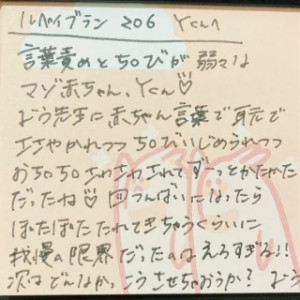 ルペイブラン 206 Yくんへ
言葉責めとちОびが弱々な
マゾ赤ちゃん、Yくん♡
よう先生に赤ちゃん言葉で耳元で
ささやかれつつちОびいじめられつつ
おちОちОさわさわされてずーっとかたかた
だったね♡ 回つんぱいになったら
ぽたぽたたれてきちゃうくらいに
我慢の限界だったのはえろすぎる!!
次はどんなか、こうさせちゃおうか? よう